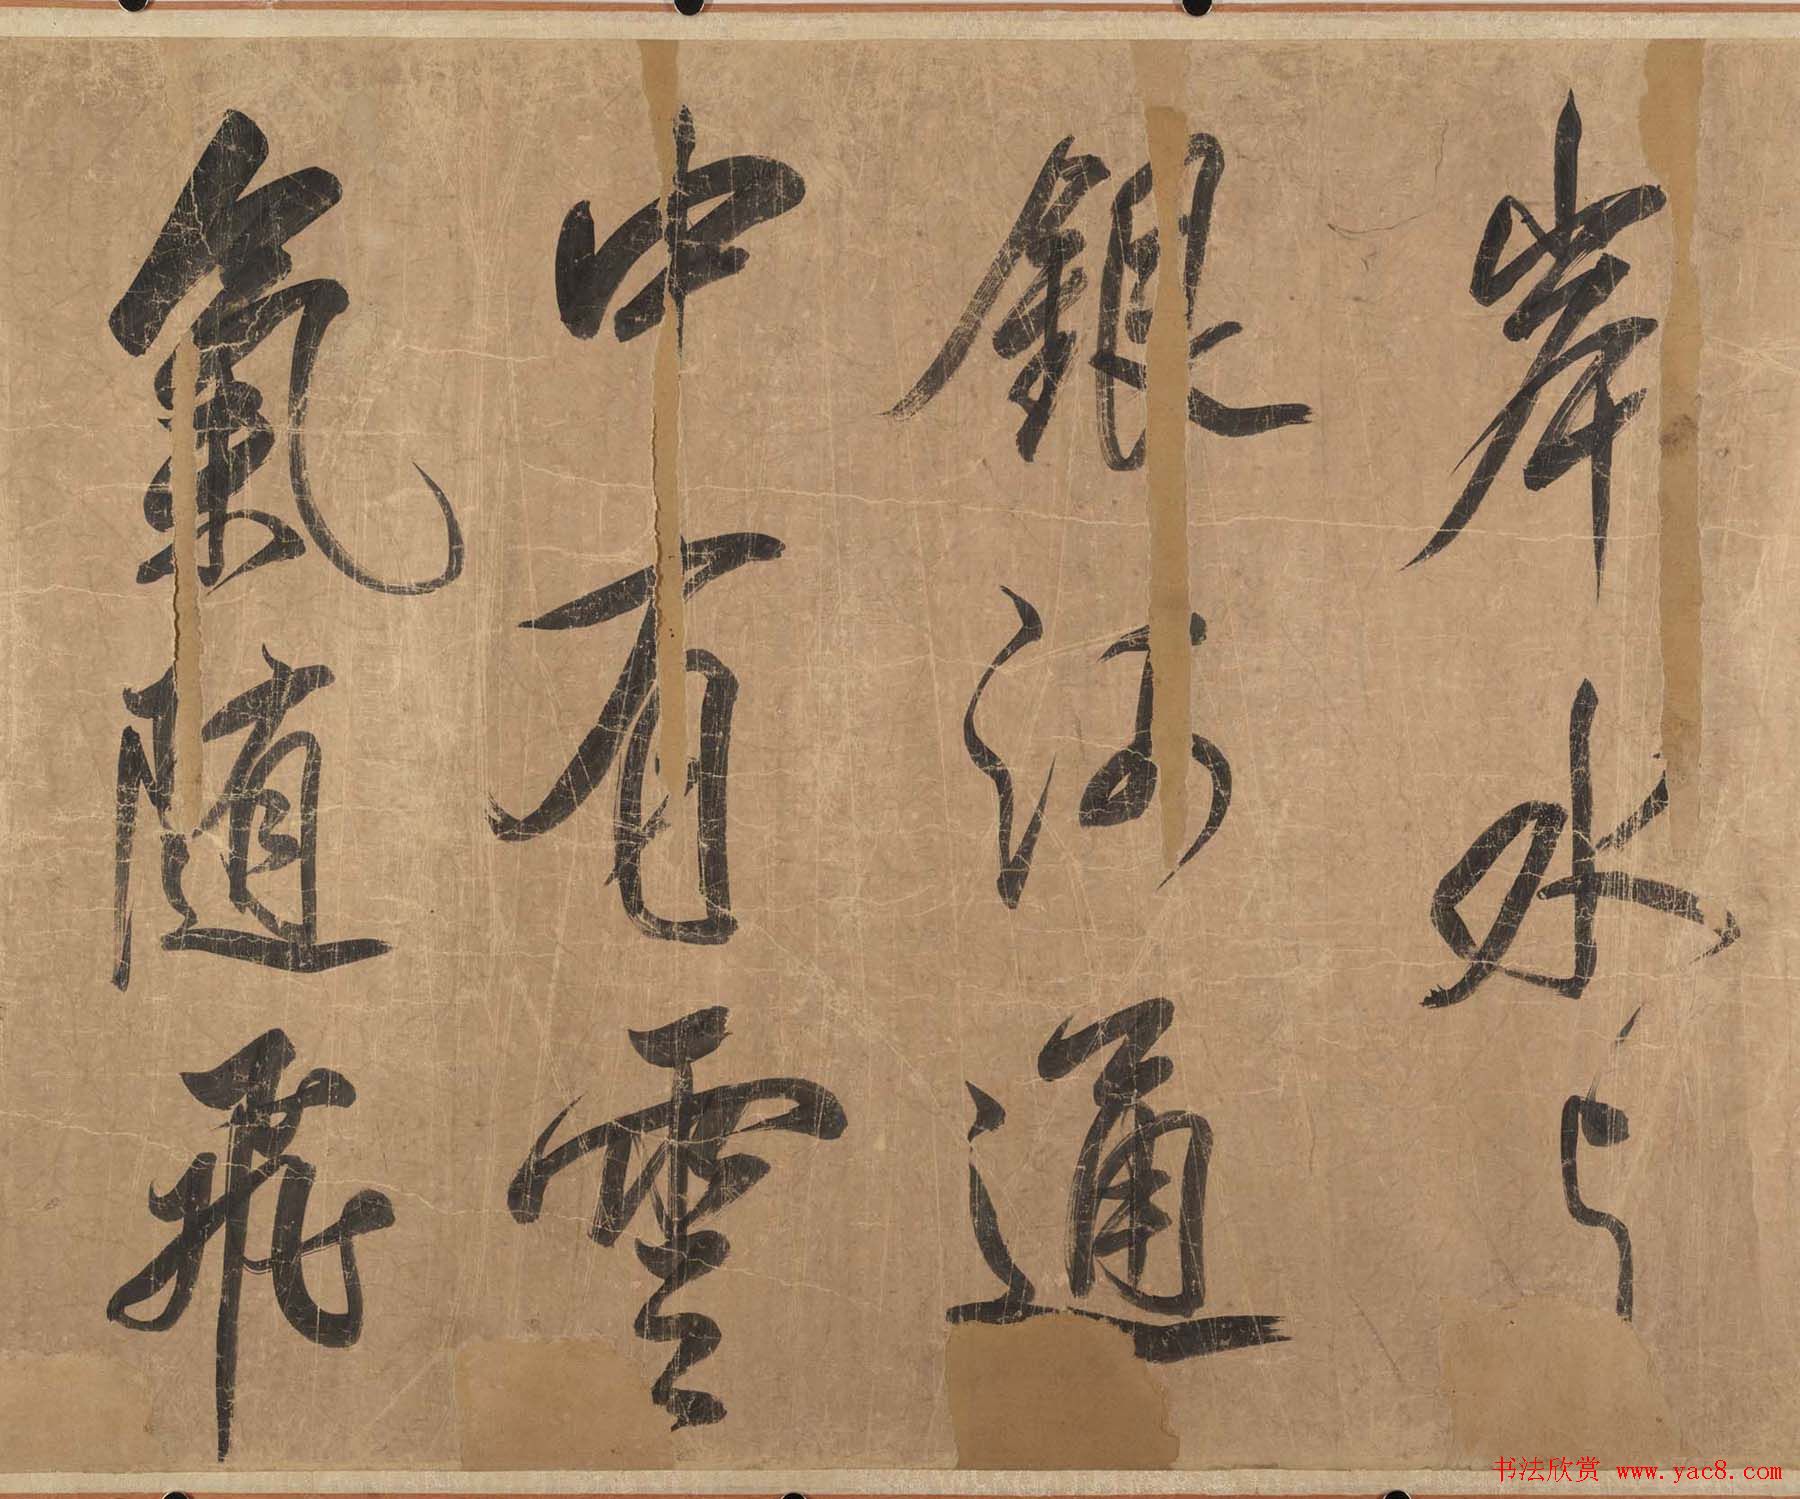 岸水与
銀河通
中有雲
氣随飛
书法欣赏 www.yac8.com